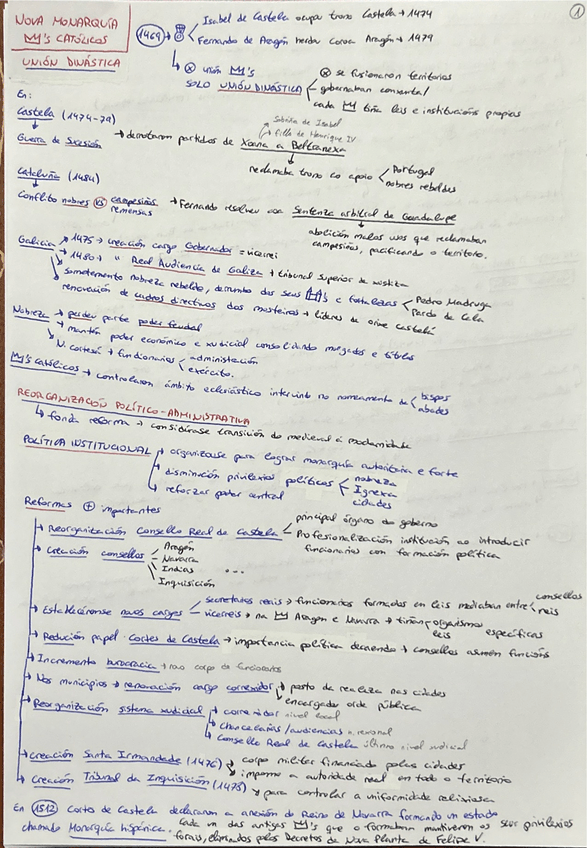 ①
NOVA MONARQUÍA
MM's CATÓLICOS
UNIÓN DINÁSTICA
1469
Isabel de Castela ocupa trono Castela → 1474
Fernando de Aragón herda coroa Aragón → 1479
unión MM's
SOLO UNIÓN DINÁSTICA
se fusionaron territorios
gobernaban conxunta/
cada M tiña leis e institucións propias
En:
Castela (1474-79)
Guerra de Sucesión → derrotaron partidos de Xoana a Beltranexa
Sobriña de Isabel
filla de Henrique IV
reclamaba trono co apoio
Portugal
nobres rebeldes
Cataluña (1484)
Conflito nobres vs campesiños remensas → Fernando resolveu coa Sentenza arbitral de Guadalupe
abolición malos usos que reclamaban
campesiños, pacificando o territorio.
Galicia → 1475 → creación cargo Gobernador = vicerrei
1480 → " Real Audiencia de Galiza → tribunal superior de xustiza
sometemento nobreza rebelde, derrumbe dos seus e fortalezas
Pedro Madruga
Pardo de Cela
renovación de cadros directivos dos mosteiros → líderes de orixe castelá
Nobreza → perdeu parte poder feudal
mantén poder económico e xudicial consolidando morgados e títulos
N. cortesá → funcionarios
administración
exército.
MM's Católicos → controlaron ámbito eclesiástico intervindo no nomeamento de
bispos
abades
REORGANIZACIÓN POLÍTICO-ADMINISTRATIVA
fonda reforma → considérase transición do medieval á modernidade
POLÍTICA INSTITUCIONAL
organizouse para lograr monarquía autoritaria e forte
disminución privilexios políticos
nobreza
Igrexa
cidades
reforzar poder central
Reformas + importantes
Reorganización Consello Real de Castela
principal órgano de goberno
Profesionalización institución ao introducir
funcionarios con formación política
Creación consellos
Aragón
Navarra
Indias
Inquisición
...
Establecéronse novos cargos
secretarios reais → funcionarios formados en leis mediaban entre
consellos
reis
vicerreis → na M Aragón e Navarra → tiñan
organismos
leis
específicas
Redución papel Cortes de Castela → importancia política decaendo → consellos asumen funcións
Incremento burocracia → novo corpo de funcionarios
Nos municipios → renovación cargo correxidor
posto da realeza nas cidades
encargado orde pública
Reorganización sistema xudicial
correxidor nivel local
chancelarías/audiencias n. rexional
Consello Real de Castela último nivel xudicial
Creación Santa Irmandade (1476)
corpo militar financiado polas cidades
impoñer a autoridade real en todo o territorio
Creación Tribunal da Inquisición (1478)
para controlar a uniformidade relixiosa
En 1512 Cortes de Castela declararon a anexión do Reino de Navarra formando un estado
chamado Monarquía hispánica. Cada un das antigas MM's que o formaban mantiveron os seus privilexios
forais, eliminados polos Decretos de Nova Planta de Felipe V.